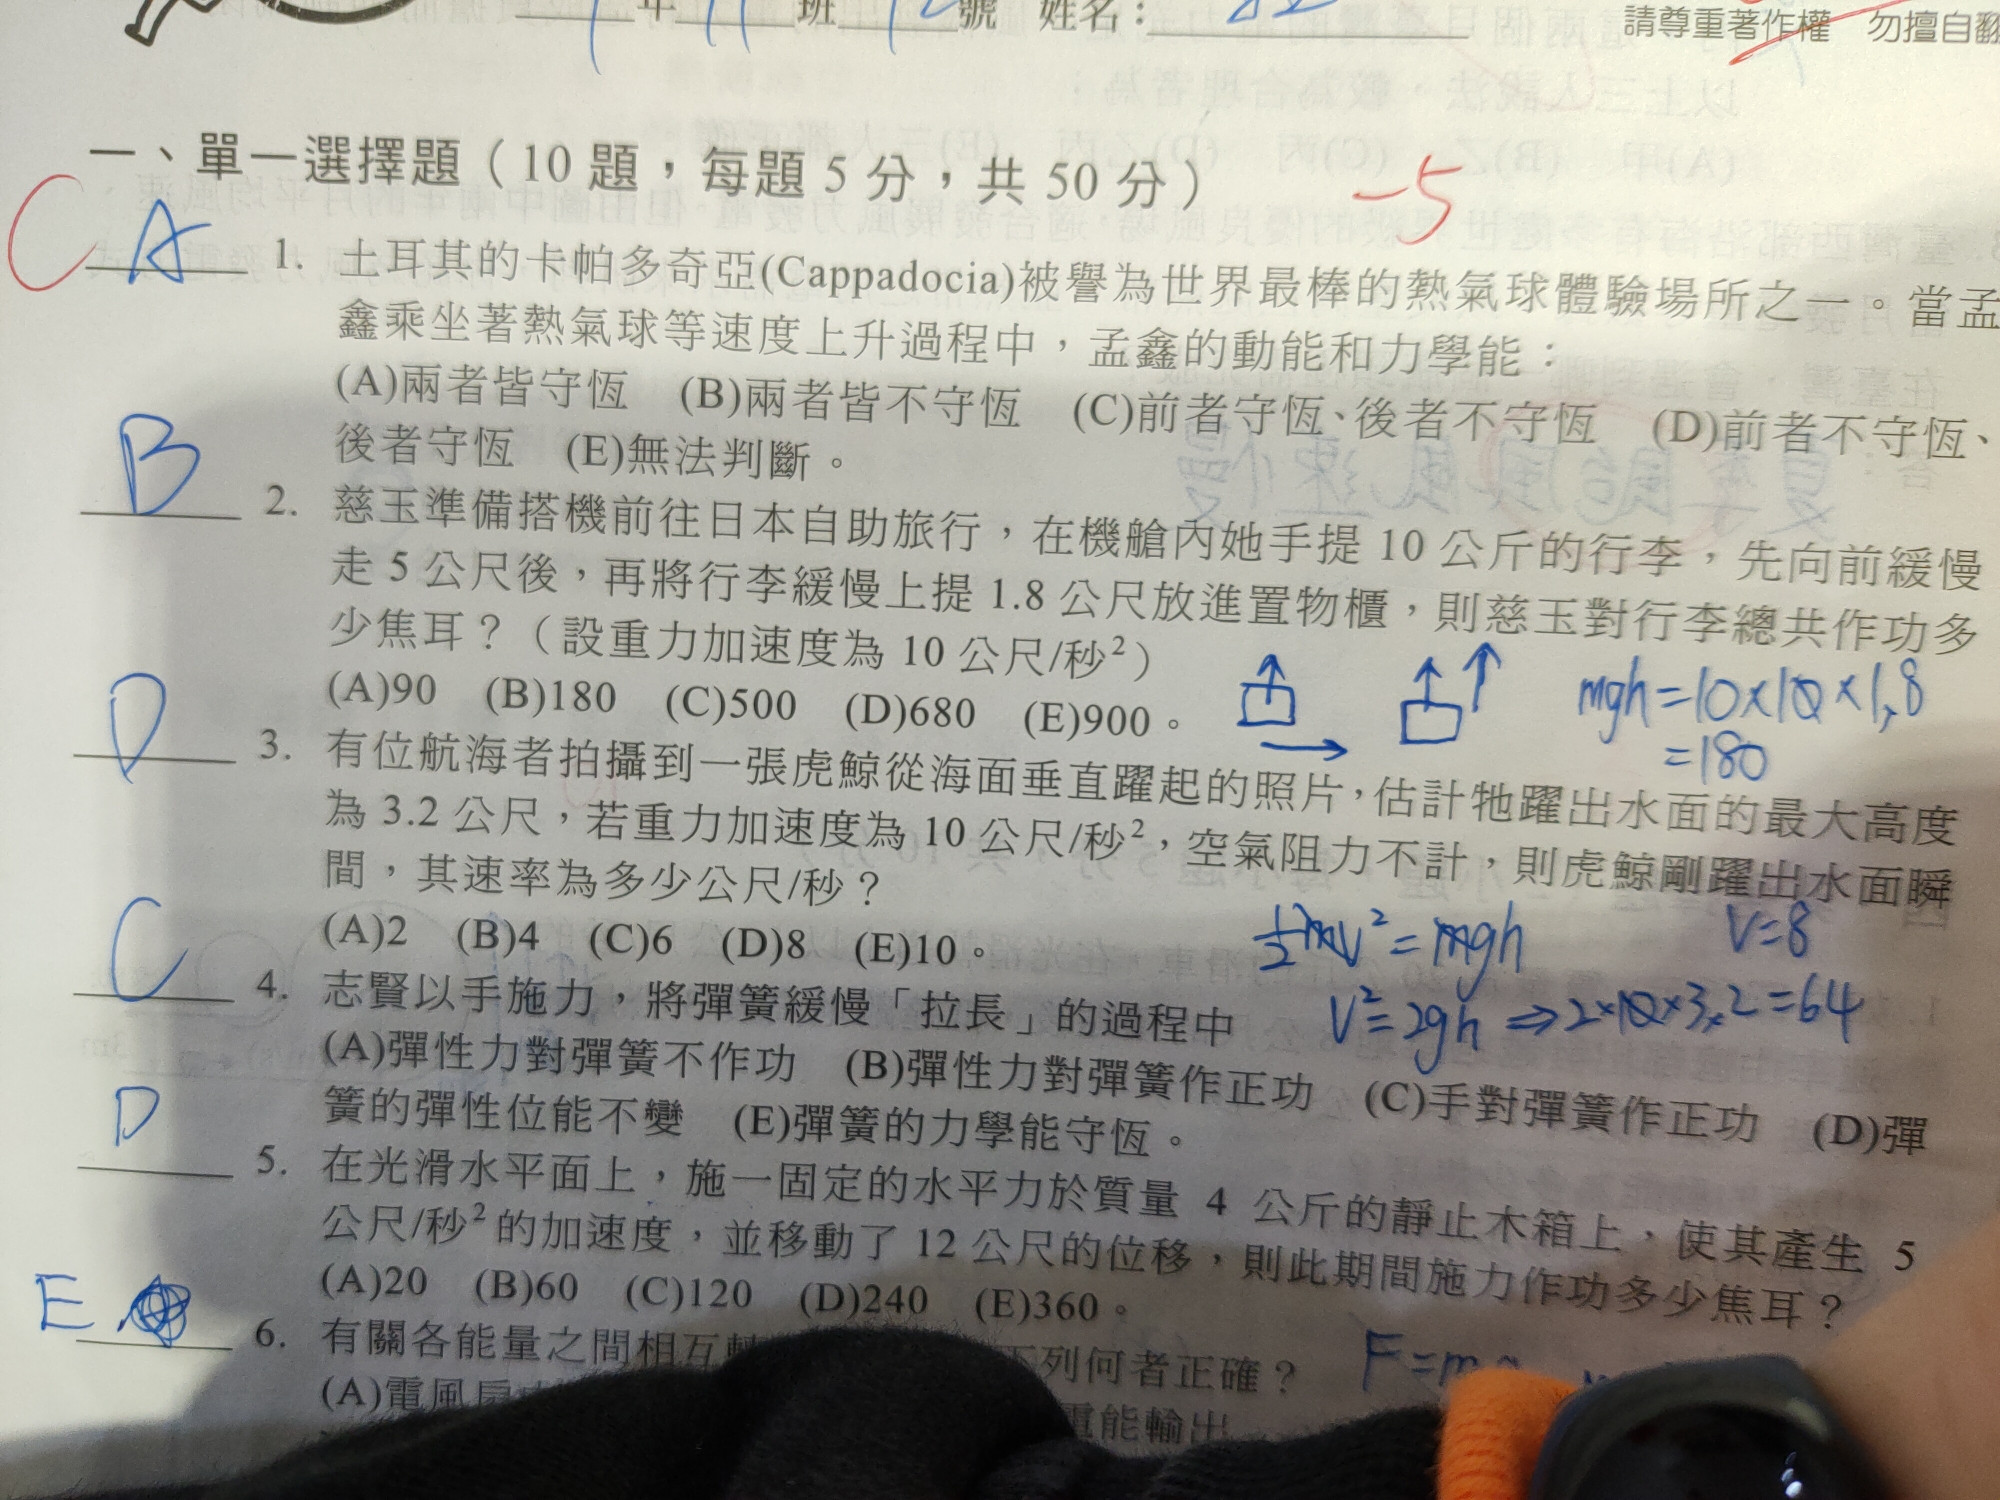 年 班 號 姓名：
請尊重著作權 勿擅自翻
一、單一選擇題（10 題，每題 5 分，共 50 分）
-5
C A 1. 土耳其的卡帕多奇亞(Cappadocia)被譽為世界最棒的熱氣球體驗場所之一。當孟
鑫乘坐著熱氣球等速度上升過程中，孟鑫的動能和力學能：
(A)兩者皆守恆 (B)兩者皆不守恆 (C)前者守恆、後者不守恆 (D)前者不守恆、
後者守恆 (E)無法判斷。
B 2. 慈玉準備搭機前往日本自助旅行，在機艙內她手提 10 公斤的行李，先向前緩慢
走 5 公尺後，再將行李緩慢上提 1.8 公尺放進置物櫃，則慈玉對行李總共作功多
少焦耳？（設重力加速度為 10 公尺/秒²）
(A)90 (B)180 (C)500 (D)680 (E)900。
mgh=10×10×1.8
=180
D 3. 有位航海者拍攝到一張虎鯨從海面垂直躍起的照片，估計牠躍出水面的最大高度
為 3.2 公尺，若重力加速度為 10 公尺/秒²，空氣阻力不計，則虎鯨剛躍出水面瞬
間，其速率為多少公尺/秒？
(A)2 (B)4 (C)6 (D)8 (E)10。
½mv²=mgh V=8
V²=2gh⇒2×10×3.2=64
C 4. 志賢以手施力，將彈簧緩慢「拉長」的過程中
(A)彈性力對彈簧不作功 (B)彈性力對彈簧作正功 (C)手對彈簧作正功 (D)彈
簧的彈性位能不變 (E)彈簧的力學能守恆。
D 5. 在光滑水平面上，施一固定的水平力於質量 4 公斤的靜止木箱上，使其產生 5
公尺/秒²的加速度，並移動了 12 公尺的位移，則此期間施力作功多少焦耳？
(A)20 (B)60 (C)120 (D)240 (E)360。
E 6. 有關各能量之間相互轉 下列何者正確？
F=m
(A)電風扇 電能輸出